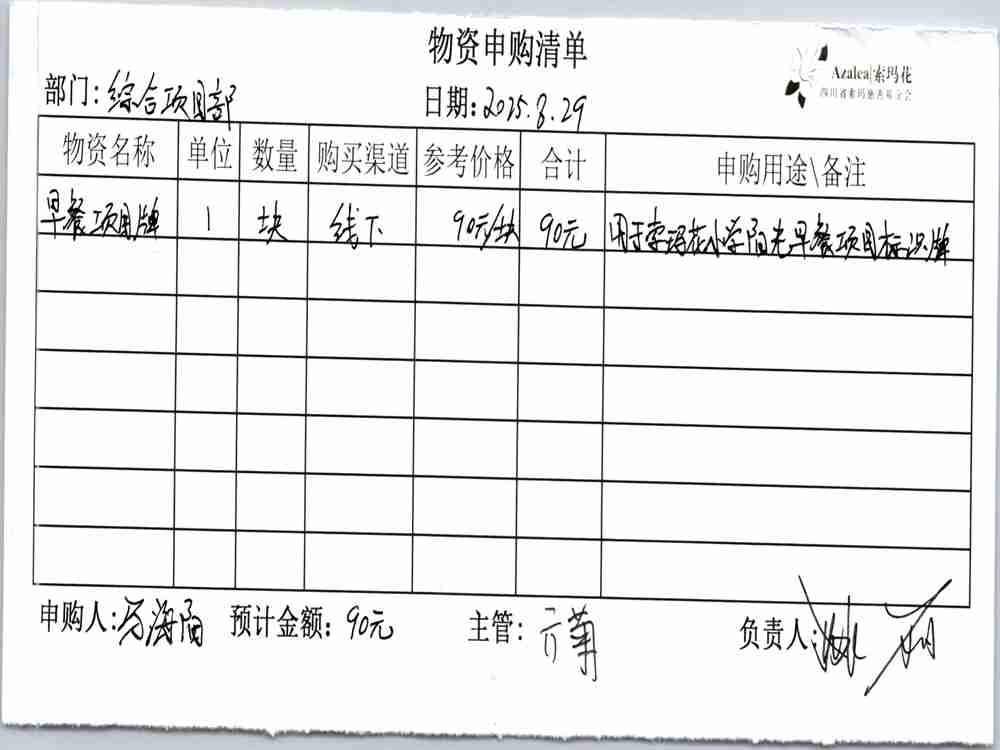 物资申购清单
Azalea 索玛花
四川省索玛慈善基金会
部门:综合项目部 日期:2025.8.29
物资名称 单位 数量 购买渠道 参考价格 合计 申购用途\备注
早餐项目牌 1 块 线下 90元/块 90元 用于索玛花小学阳光早餐项目标识牌
申购人:马海阳 预计金额:90元 主管: 负责人: